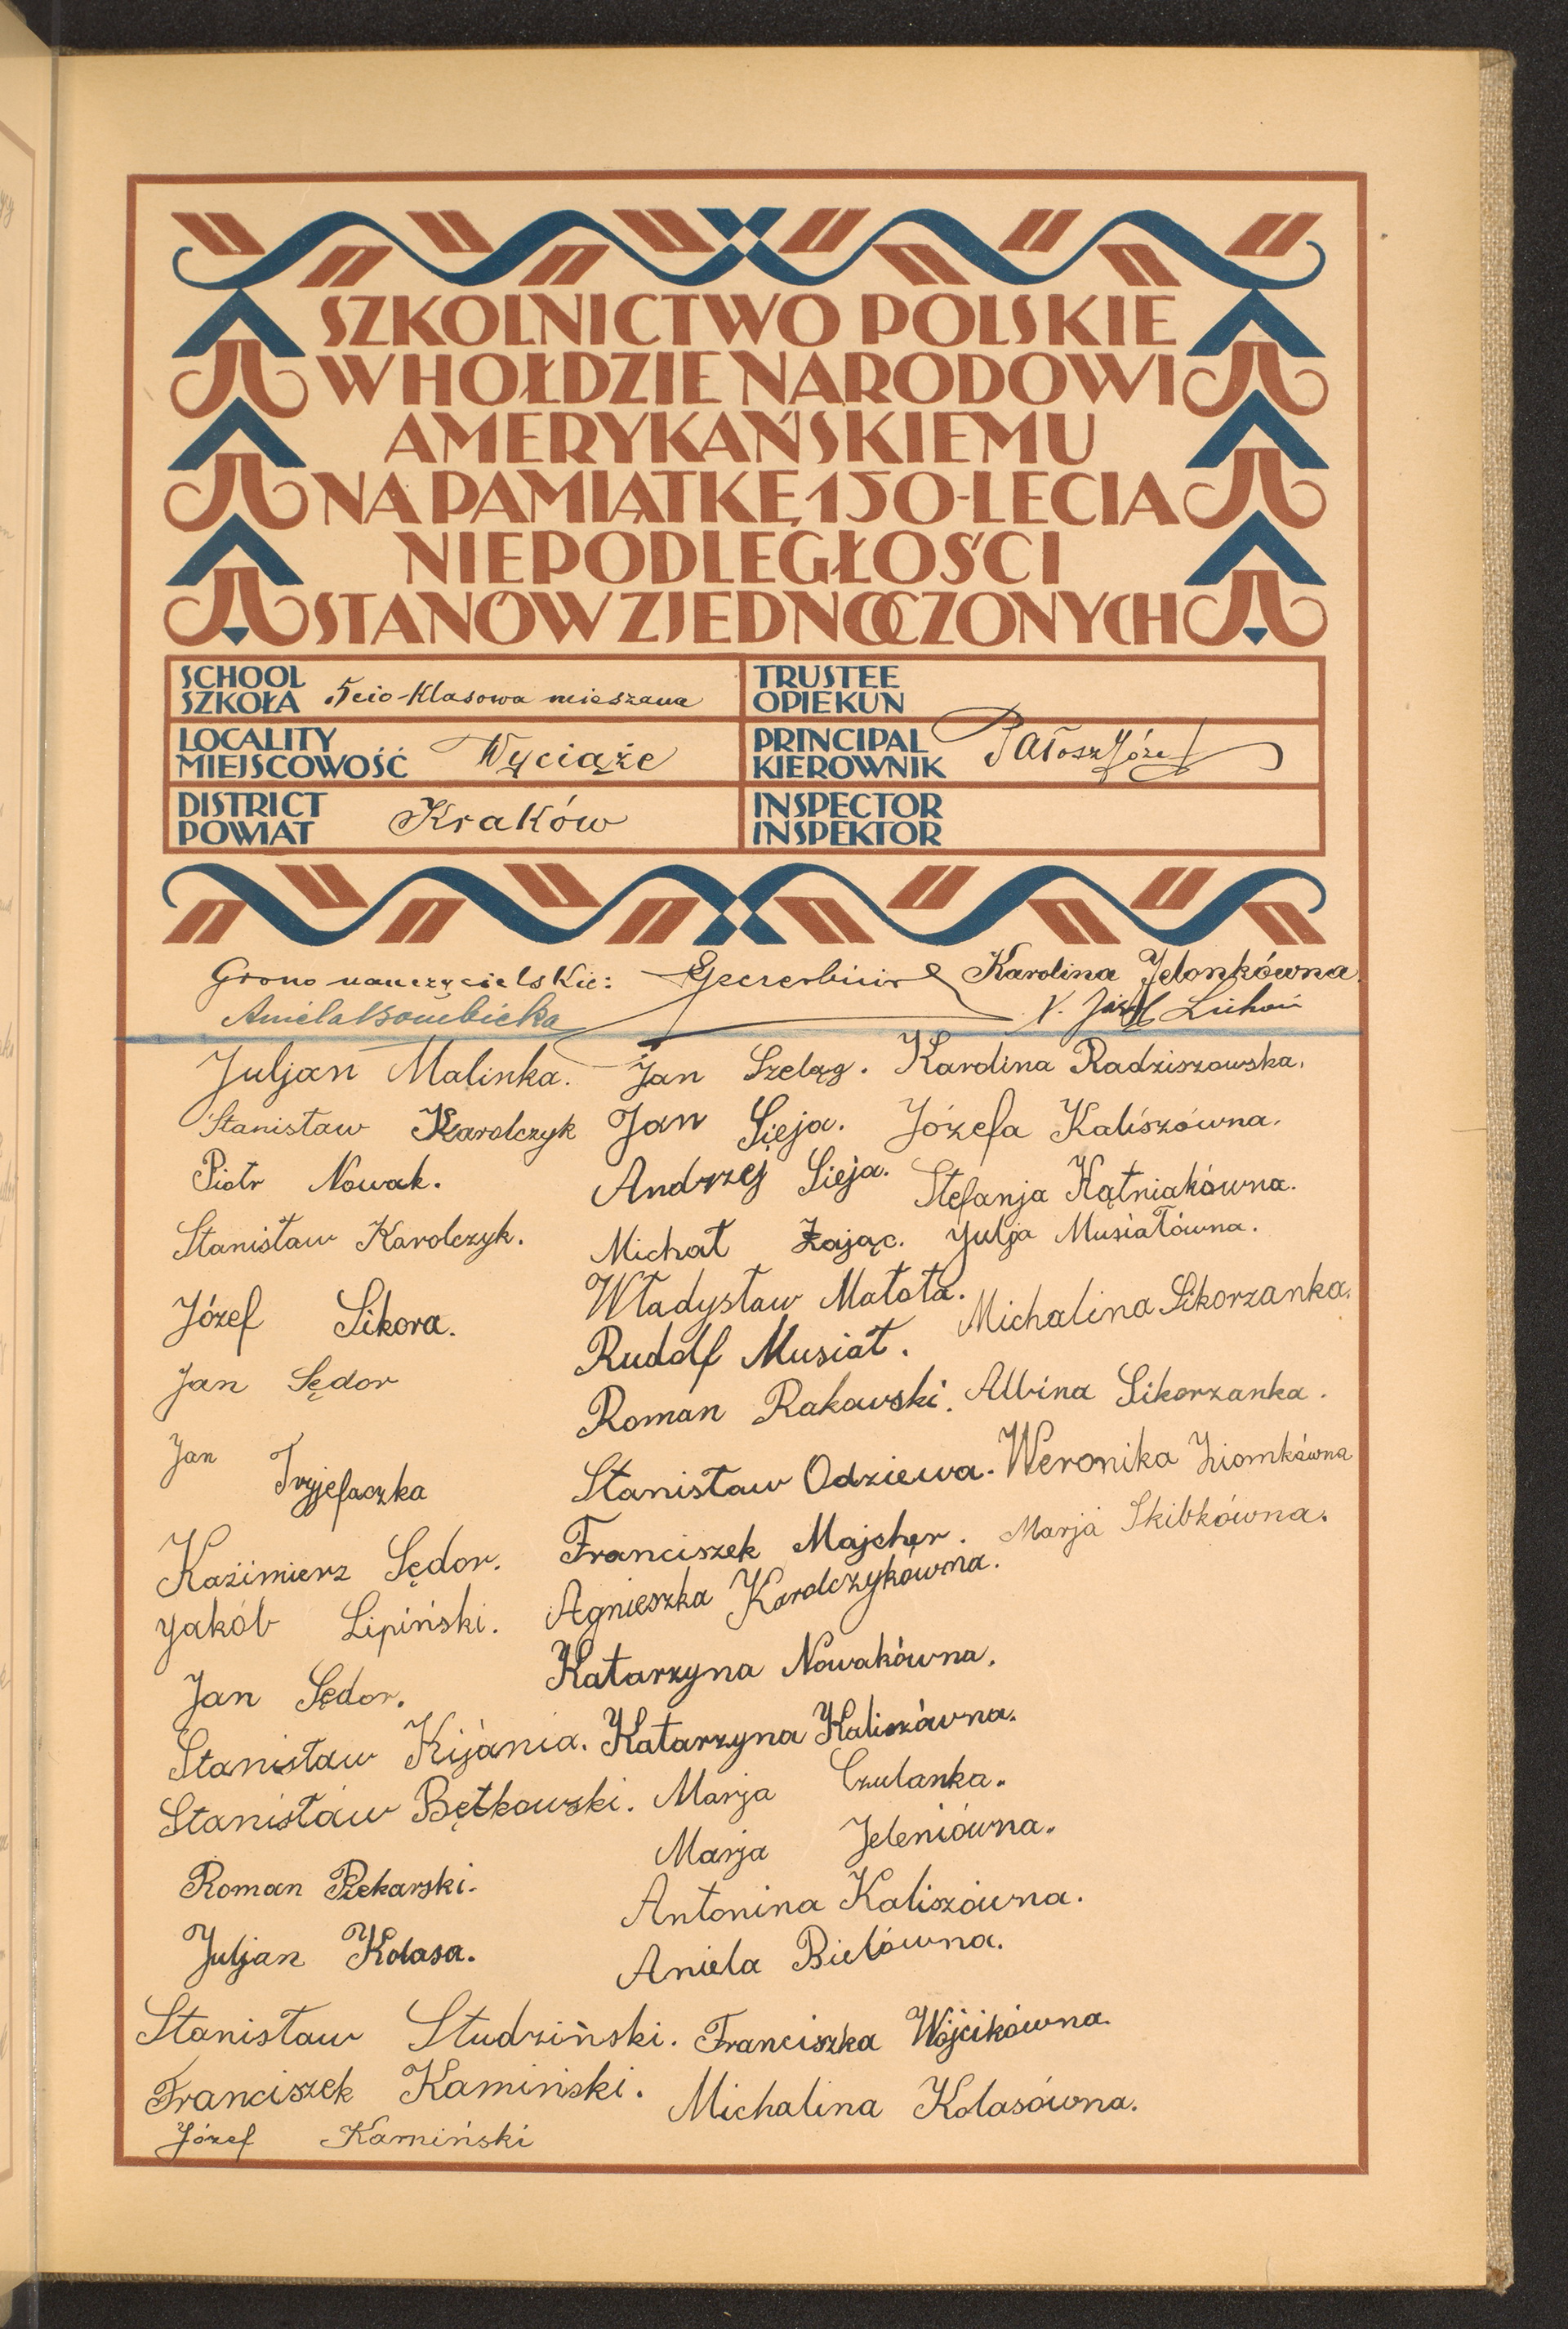 SZKOLNICTWO POLSKIE
W HOŁDZIE NARODOWI
AMERYKAŃSKIEMU
NA PAMIĄTKĘ 150-LECIA
NIEPODLEGŁOŚCI
STANÓW ZJEDNOCZONYCH
SCHOOL
SZKOŁA 5cio-Klasowa mieszana
LOCALITY
MIEJSCOWOŚĆ Wyciąże
DISTRICT
POWIAT Kraków
TRUSTEE
OPIEKUN
PRINCIPAL
KIEROWNIK Pałosz Józef
INSPECTOR
INSPEKTOR
Grono nauczycielskie: Karolina Jelonkówna
Aniela X. Józef
Juljan Malinka.
Stanisław Karolczyk
Piotr Nowak.
Stanisław Karolczyk.
Józef Sikora.
Jan Sędor
Jan
Kaźimierz Sędor.
Jakób Lipiński.
Jan Sędor.
Stanisław Kijania.
Stanisław Bętkowski.
Roman Piekarski.
Juljan Kolasa.
Stanisław Studziński.
Franciszek Kamiński.
Józef Kamiński
Jan Szeląg.
Jan Sieja.
Andrzej Sieja.
Michał Zając.
Władysław Małota.
Rudolf Musiał.
Roman Rakowski.
Stanisław Odziewa.
Franciszek Majcher.
Agnieszka Karolczykówna.
Katarzyna Nowakówna.
Katarzyna Kaliszówna.
Marja Czulanka.
Marja Jeleniówna.
Antonina Kaliszówna.
Aniela Bielówna.
Franciszka Wójcikówna.
Michalina Kolasówna.
Karolina Radziszowska.
Józefa Kaliszówna.
Stefanja Kątniakówna.
Julja Musiałówna.
Michalina Sikorzanka.
Albina Sikorzanka.
Weronika Ziomkówna
Marja Skibkówna.